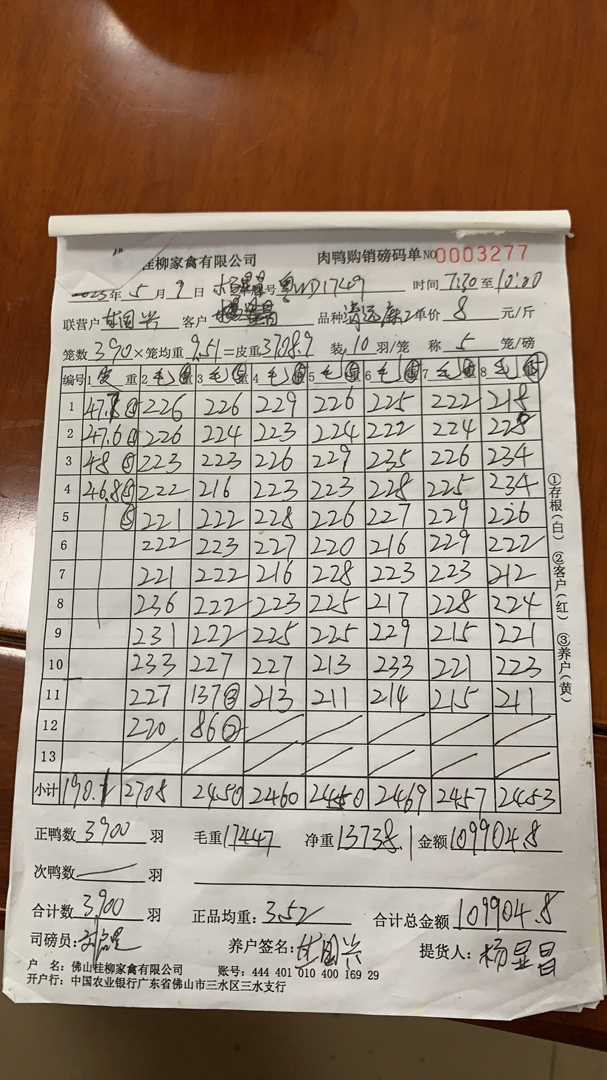 桂柳家禽有限公司 肉鸭购销磅码单 NO 0003277
2025年 5 月 9 日 号 粤 D1749 时间 7:30 至 10:00
联营户 甘国兴 客户 杨显昌 品种 单价 8 元/斤
笼数 390 ×笼均重 9.51 =皮重 3708.9 装 10 羽/笼 称 5 笼/磅
编号 1 皮 重 2 毛 重 3 毛 重 4 毛 重 5 毛 重 6 毛 重 7 毛 重 8 毛 重
1 47.8 ⑤ 226 226 229 226 225 222 218
2 47.6 ⑤ 226 224 223 224 222 224 228
3 48 ⑤ 223 223 226 229 235 226 234
4 46.8 ⑤ 222 216 223 223 228 225 234
5 ⑤ 221 222 228 226 227 229 226
6 222 223 227 220 216 229 222
7 221 222 216 228 223 223 212
8 236 222 223 225 217 228 224
9 231 222 225 225 229 215 221
10 233 227 227 213 233 221 223
11 227 137 ③ 213 211 214 215 211
12 220 86 ②
13
小计 190. 2708 2450 2460 2450 2469 2457 2453
①存根(白) ②客户(红) ③养户(黄)
正鸭数 3900 羽 毛重 17447 净重 13738.1 金额 109904.8
次鸭数 羽
合计数 3900 羽 正品均重: 3.52 合计总金额 109904.8
司磅员: 养户签名: 甘国兴 提货人: 杨显昌
户 名: 佛山桂柳家禽有限公司 账号: 444 401 010 400 169 29
开户行: 中国农业银行广东省佛山市三水区三水支行